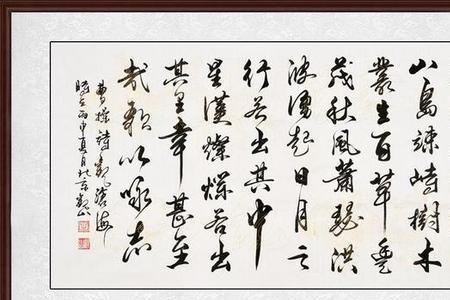 山島竦峙樹木
叢生百草豐
茂秋風蕭瑟洪
波湧起日月之
行若出其中
星漢燦爛若出
其里幸甚至
哉歌以詠志
曹操詩觀滄海
時在丙申夏月北京觀山